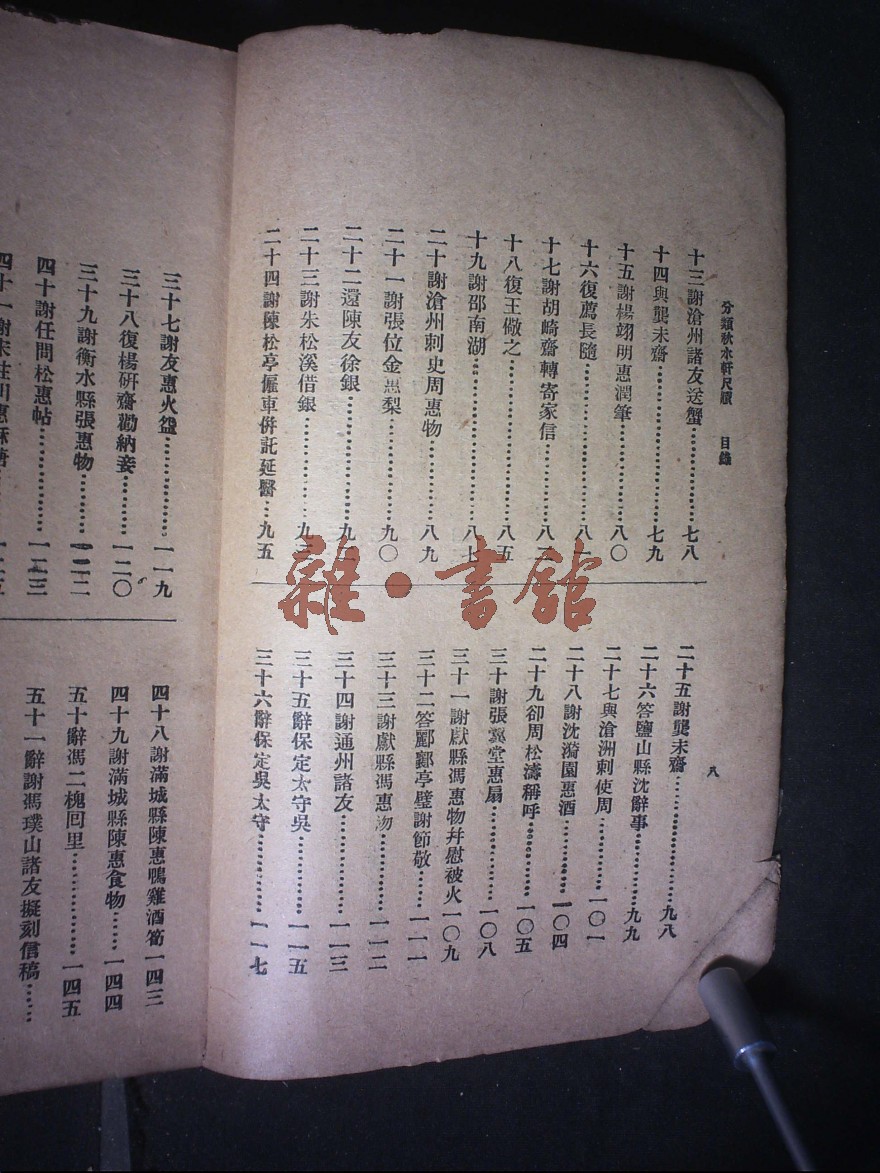 分類秋水軒尺牘 目錄
十三謝滄州諸友送蟹………七八
十四與龔未齋………七九
十五謝楊翊明惠潤筆………八〇
十六復薦長隨………八
十七謝胡崎齋轉寄家信………八
十八復王儆之………八五
十九謝邵南湖………八七
二十謝滄州刺史周惠物………八九
二十一謝張位金惠梨………九〇
二十二還陳友徐銀………九
二十三謝朱松溪借銀………九
二十四謝陳松亭僱車併託延醫…九五
二十五謝龔未齋………九八
二十六答鹽山縣沈辭事………九九
二十七與滄洲刺使周………一〇一
二十八謝沈漪園惠酒………一〇四
二十九卻周松濤稱呼………一〇五
三十謝張冀堂惠扇………一〇八
三十一謝獻縣馮惠物幷慰被火一〇九
三十二答酈酃亭璧謝節敬……一一一
三十三謝獻縣馮惠物………一一二
三十四謝通州諸友………一一三
三十五辭保定太守吳………一一五
三十六辭保定吳太守………一一七
八
三十七謝友惠火盌………一一九
三十八復楊研齋勸納妾………一二〇
三十九謝衡水縣張惠物………一二二
四十謝任問松惠帖………一二三
四十一謝
四十八謝滿城縣陳惠鴨雞酒筍一四三
四十九謝滿城縣陳惠食物……一四四
五十辭馮二槐囘里………一四五
五十一辭謝馮璞山諸友擬刻信稿……
雜·書館